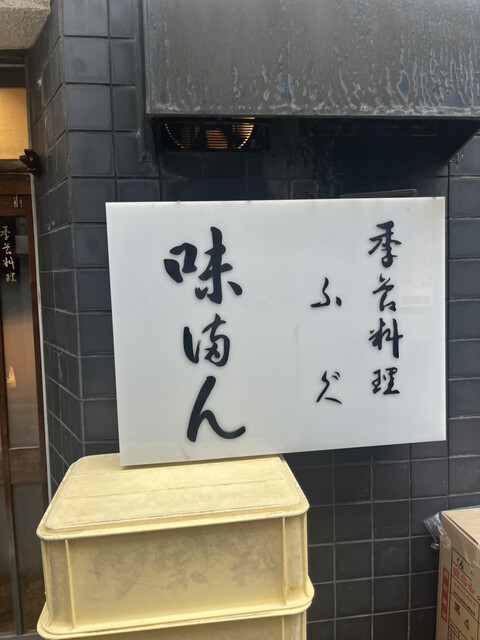 季節料理
ふぐ
味満ん
季節料理